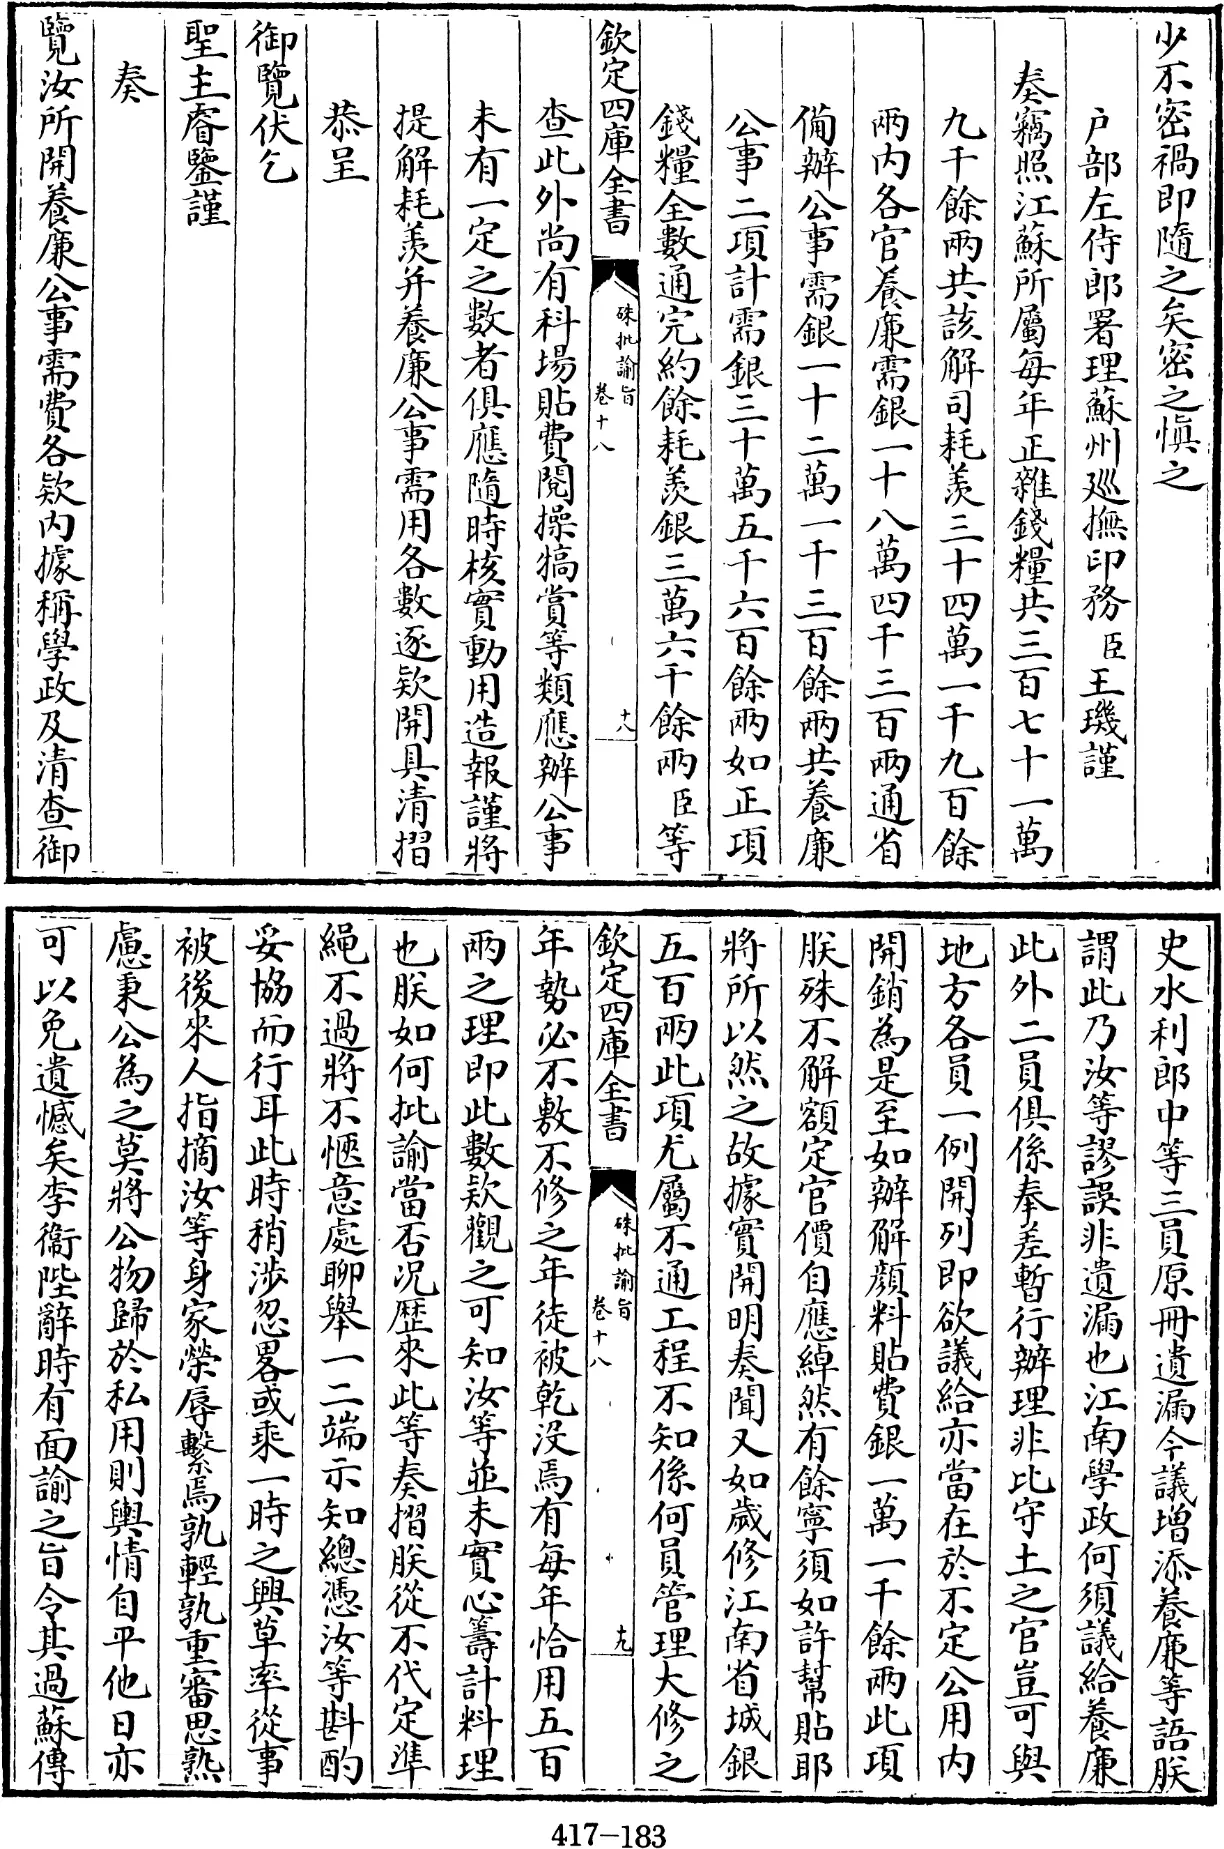 少不密禍即隨之矣密之愼之
戶部左侍郎署理蘇州廵撫印務臣王璣謹
奏竊照江蘇所屬每年正雜錢糧共三百七十一萬
九千餘兩共該解司耗羨三十四萬一千九百餘
兩內各官養廉需銀一十八萬四千三百兩通省
備辦公事需銀一十二萬一千三百餘兩共養廉
公事二項計需銀三十萬五千六百餘兩如正項
錢糧全數通完約餘耗羨銀三萬六千餘兩臣等
欽定四庫全書
硃批諭旨
卷十八
十八
查此外尚有科場貼費閱操犒賞等類應辦公事
未有一定之數者俱應隨時核實動用造報謹將
提解耗羨并養廉公事需用各數逐欵開具清摺
恭呈
御覽伏乞
聖主睿鑒謹
奏
覽汝所開養廉公事需費各欵內據稱學政及清查御
史水利郎中等三員原冊遺漏今議增添養廉等語朕
謂此乃汝等謬誤非遺漏也江南學政何須議給養廉
此外二員俱係奉差暫行辦理非比守土之官豈可與
地方各員一例開列即欲議給亦當在於不定公用內
開銷為是至如辦解顏料貼費銀一萬一千餘兩此項
朕殊不解額定官價自應綽然有餘寧須如許幫貼耶
將所以然之故據實開明奏聞又如歲修江南省城銀
五百兩此項尤屬不通工程不知係何員管理大修之
欽定四庫全書
硃批諭旨
卷十八
十九
年勢必不敷不修之年徒被乾沒焉有每年恰用五百
兩之理即此數欵觀之可知汝等並未實心籌計料理
也朕如何批諭當否況歷來此等奏摺朕從不代定準
繩不過將不愜意處聊舉一二端示知總憑汝等斟酌
妥協而行耳此時稍涉忽畧或乘一時之興草率從事
被後來人指摘汝等身家榮辱繫焉孰輕孰重審思熟
慮秉公為之莫將公物歸於私用則輿情自平他日亦
可以免遺憾矣李衞陛辭時有面諭之旨令其過蘇傳
417-183